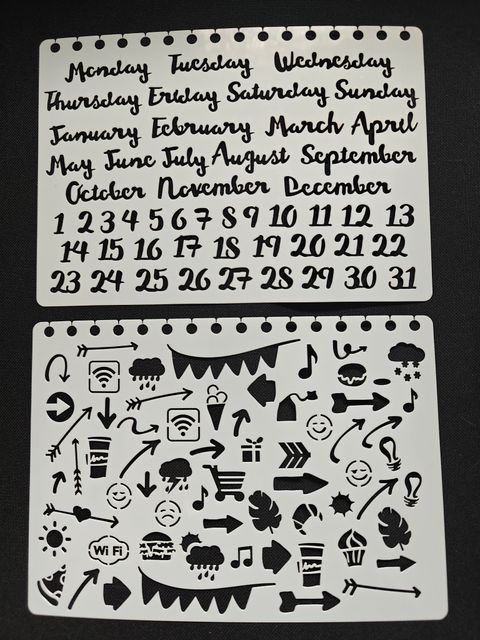 Monday Tuesday Wednesday
Thursday Friday Saturday Sunday
January February March April
May June July August September
October November December
1 2 3 4 5 6 7 8 9 10 11 12 13
14 15 16 17 18 19 20 21 22
23 24 25 26 27 28 29 30 31
Wi Fi